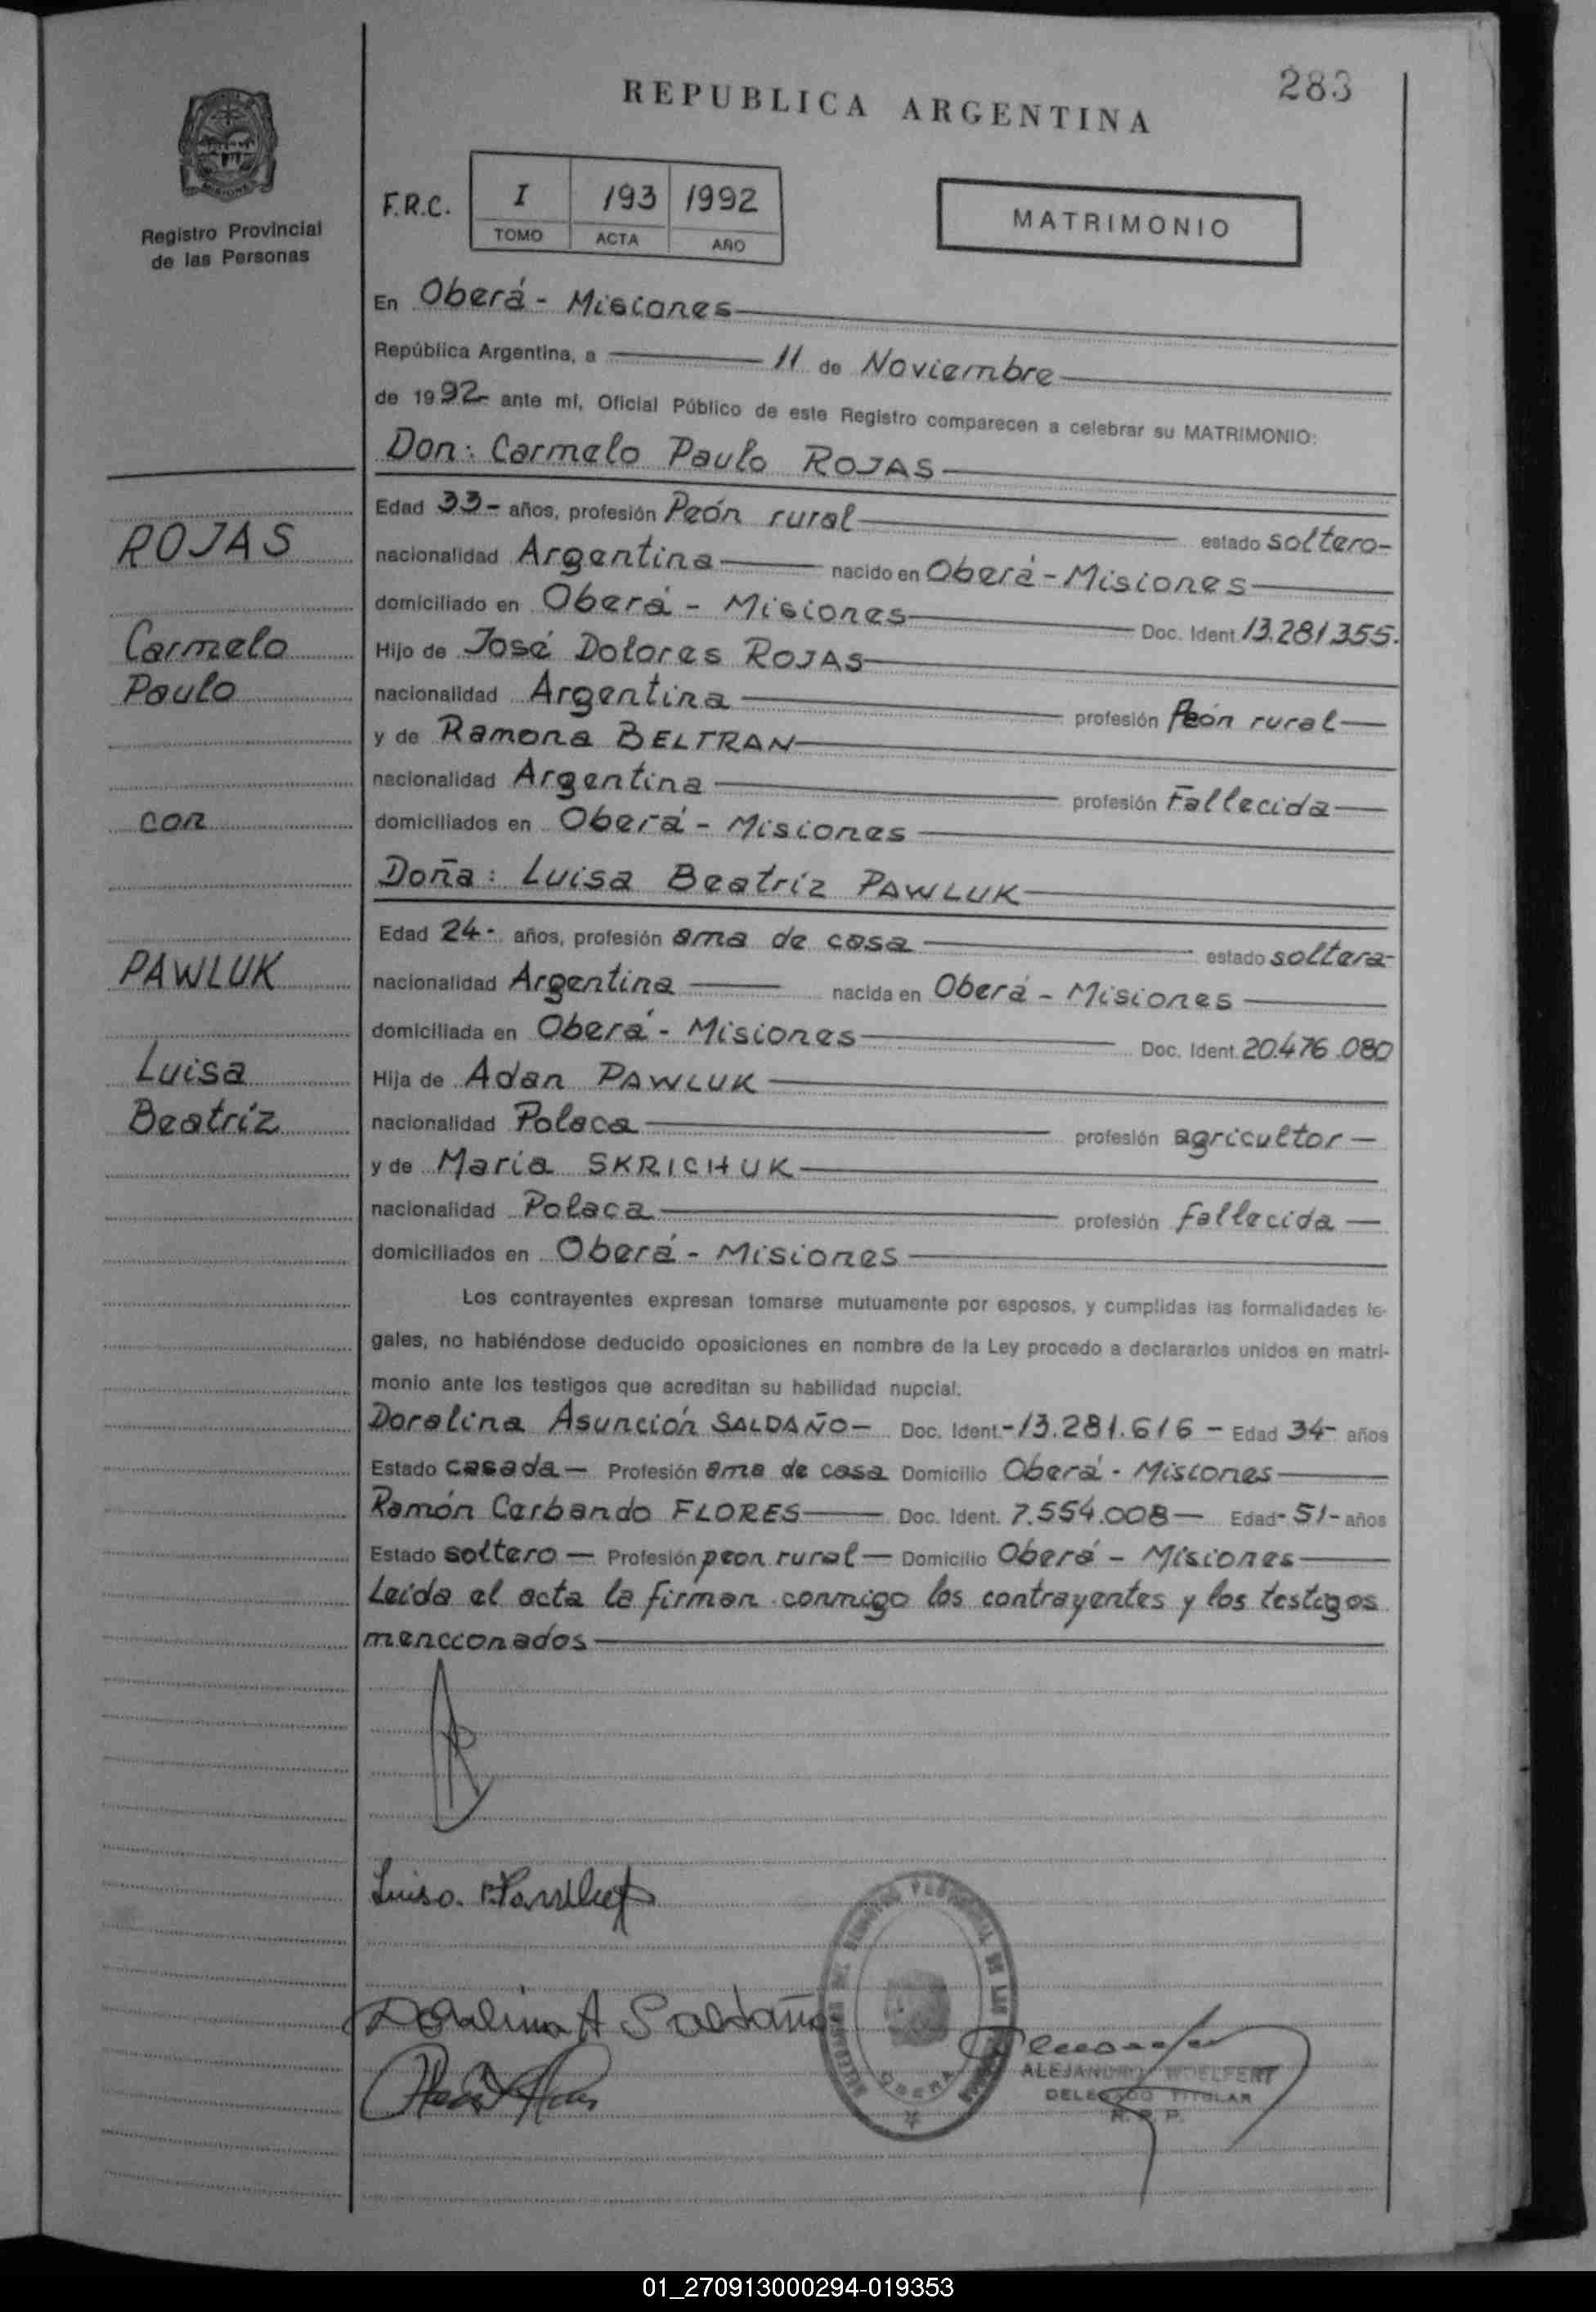 283
REPUBLICA ARGENTINA
MISIONES
Registro Provincial
de las Personas
F.R.C. I 193 1992
TOMO ACTA AÑO
MATRIMONIO
En Oberá - Misiones
República Argentina, a 11 de Noviembre
de 1992- ante mí, Oficial Público de este Registro comparecen a celebrar su MATRIMONIO:
Don: Carmelo Paulo ROJAS
Edad 33- años, profesión Peón rural estado soltero-
ROJAS
nacionalidad Argentina nacido en Oberá - Misiones
domiciliado en Oberá - Misiones Doc. Ident. 13.281.355.
Carmelo
Hijo de José Dolores ROJAS
Paulo
nacionalidad Argentina profesión Peón rural
y de Ramona BELTRAN
nacionalidad Argentina profesión Fallecida
con
domiciliados en Oberá - Misiones
Doña: Luisa Beatriz PAWLUK
Edad 24- años, profesión ama de casa estado soltera-
PAWLUK
nacionalidad Argentina nacida en Oberá - Misiones
domiciliada en Oberá - Misiones Doc. Ident. 20.476.080
Luisa
Hija de Adan PAWLUK
Beatriz
nacionalidad Polaca profesión agricultor
y de Maria SKRICHUK
nacionalidad Polaca profesión fallecida
domiciliados en Oberá - Misiones
Los contrayentes expresan tomarse mutuamente por esposos, y cumplidas las formalidades le-
gales, no habiéndose deducido oposiciones en nombre de la Ley procedo a declararlos unidos en matri-
monio ante los testigos que acreditan su habilidad nupcial.
Doralina Asunción SALDAÑO- Doc. Ident.-13.281.616- Edad 34- años
Estado casada- Profesión ama de casa Domicilio Oberá - Misiones
Ramón Carbando FLORES Doc. Ident. 7.554.008- Edad- 51- años
Estado soltero- Profesión peon rural- Domicilio Oberá - Misiones
Leida el acta la firman conmigo los contrayentes y los testigos
mencionados
Luisa. B. Pawluk
Doralina A Saldaño
OBERA
ALEJANDRO WOELFERT
DELEGADO TITULAR
R. P. P.
01_270913000294-019353